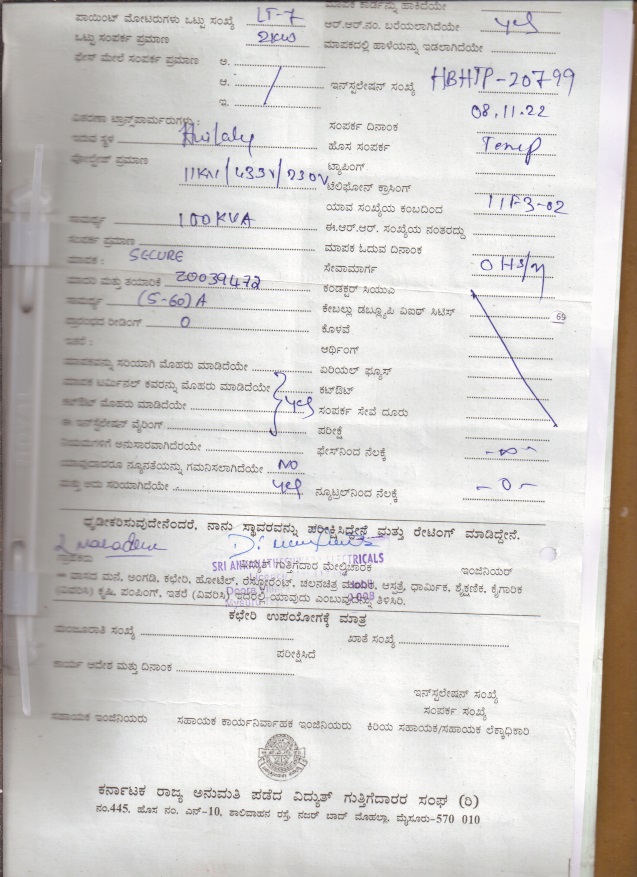 ಮಾಪಕ ಕಾರ್ಡನ್ನು ಹಾಕಿದೆಯೇ
ಪಾಯಿಂಟ್ ಮೋಟರುಗಳು ಒಟ್ಟು ಸಂಖ್ಯೆ LT-7 ಆರ್.ಆರ್.ನಂ. ಬರೆಯಲಾಗಿದೆಯೇ yes
ಒಟ್ಟು ಸಂಪರ್ಕ ಪ್ರಮಾಣ 2KW ಮಾಪಕದಲ್ಲಿ ಹಾಳೆಯನ್ನು ಇಡಲಾಗಿದೆಯೇ
ಫೇಸ್ ಮೇಲೆ ಸಂಪರ್ಕ ಪ್ರಮಾಣ ಅ.
ಆ. ಇನ್‌ಸ್ಟಲೇಷನ್ ಸಂಖ್ಯೆ HBHTP-20799
ಇ. 08.11.22
ವಿತರಣಾ ಟ್ರಾನ್ಸ್‌ಫಾರ್ಮರುಗಳು : ಸಂಪರ್ಕ ದಿನಾಂಕ
ಇರುವ ಸ್ಥಳ ಹೊಸ ಸಂಪರ್ಕ Temp
ವೋಲ್ಟೇಜ್ ಪ್ರಮಾಣ 11KV/433V/230V ಟ್ಯಾಪಿಂಗ್
ಟೆಲಿಫೋನ್ ಕ್ರಾಸಿಂಗ್
ಯಾವ ಸಂಖ್ಯೆಯ ಕಂಬದಿಂದ 11F3-02
ಸಾಮರ್ಥ್ಯ 100KVA ಈ.ಆರ್.ಆರ್. ಸಂಖ್ಯೆಯ ನಂತರದ್ದು
ಸಂಪರ್ಕ ಪ್ರಮಾಣ ಮಾಪಕ ಓದುವ ದಿನಾಂಕ
ಮಾಪಕ : SECURE ಸೇವಾಮಾರ್ಗ
ಮಾದರಿ ಮತ್ತು ತಯಾರಿಕೆ 20039472 ಕಂಡಕ್ಟರ್ ಸಿಯುಎ
ಸಾಮರ್ಥ್ಯ (5-60)A ಕೇಬಲ್ಲು ಡಬ್ಲ್ಯೂಪಿ ವಿಐಆರ್ ಸಿಟಿಸ್ 69
ಪ್ರಾರಂಭದ ರೀಡಿಂಗ್ 0 ಕೊಳವೆ
ಇತರೆ : ಅರ್ಥಿಂಗ್
ಮಾಪಕವನ್ನು ಸರಿಯಾಗಿ ಮೊಹರು ಮಾಡಿದೆಯೇ ಏರಿಯಲ್ ಫ್ಯೂಸ್
ಮಾಪಕ ಟರ್ಮಿನಲ್ ಕವರನ್ನು ಮೊಹರು ಮಾಡಿದೆಯೇ ಕಟ್‌ಔಟ್
ಕಟ್‌ಔಟ್ ಮೊಹರು ಮಾಡಿದೆಯೇ yes ಸಂಪರ್ಕ ಸೇವೆ ದೂರು
ಈ ಇನ್‌ಸ್ಟಲೇಷನ್ ವೈರಿಂಗ್ ಪರೀಕ್ಷೆ
ನಿಯಮಗಳಿಗೆ ಅನುಸಾರವಾಗಿದೆಯೇ ಫೇಸ್‌ನಿಂದ ನೆಲಕ್ಕೆ -∞-
ಯಾವುದಾದರೂ ನ್ಯೂನತೆಯನ್ನು ಗಮನಿಸಲಾಗಿದೆಯೇ NO
ಮತ್ತು ಅದು ಸರಿಯಾಗಿದೆಯೇ yes ನ್ಯೂಟ್ರಲ್‌ನಿಂದ ನೆಲಕ್ಕೆ -0-
ಧೃಡೀಕರಿಸುವುದೇನೆಂದರೆ, ನಾನು ಸ್ಥಾವರವನ್ನು ಪರೀಕ್ಷಿಸಿದ್ದೇನೆ ಮತ್ತು ರೇಟಿಂಗ್ ಮಾಡಿದ್ದೇನೆ.
ಗ್ರಾಹಕರು ವಿದ್ಯುತ್ ಗುತ್ತಿಗೆದಾರ ಮೇಲ್ವಿಚಾರಕ ಇಂಜಿನಿಯರ್
ವಾಸದ ಮನೆ, ಅಂಗಡಿ, ಕಛೇರಿ, ಹೋಟೆಲ್, ರೆಸ್ಟೋರೆಂಟ್, ಚಲನಚಿತ್ರ ಮಂದಿರ, ಆಸ್ಪತ್ರೆ, ಧಾರ್ಮಿಕ, ಶೈಕ್ಷಣಿಕ, ಕೈಗಾರಿಕ
(ವಿವರಿಸಿ) ಕೃಷಿ, ಪಂಪಿಂಗ್, ಇತರೆ (ವಿವರಿಸಿ) ಇದರಲ್ಲಿ ಯಾವುದು ಎಂಬುವುದನ್ನು ತಿಳಿಸಿರಿ.
ಕಛೇರಿ ಉಪಯೋಗಕ್ಕೆ ಮಾತ್ರ
ಮಂಜೂರಾತಿ ಸಂಖ್ಯೆ ಖಾತೆ ಸಂಖ್ಯೆ
ಪರೀಕ್ಷಿಸಿದೆ
ಕಾರ್ಯ ಆದೇಶ ಮತ್ತು ದಿನಾಂಕ
ಇನ್‌ಸ್ಟಲೇಷನ್ ಸಂಖ್ಯೆ
ಸಂಪರ್ಕ ಸಂಖ್ಯೆ
ಸಹಾಯಕ ಇಂಜಿನಿಯರು ಸಹಾಯಕ ಕಾರ್ಯನಿರ್ವಾಹಕ ಇಂಜಿನಿಯರು ಕಿರಿಯ ಸಹಾಯಕ/ಸಹಾಯಕ ಲೆಕ್ಕಾಧಿಕಾರಿ
ಕರ್ನಾಟಕ ರಾಜ್ಯ ಅನುಮತಿ ಪಡೆದ ವಿದ್ಯುತ್ ಗುತ್ತಿಗೆದಾರರ ಸಂಘ (ರಿ)
ನಂ.445, ಹೊಸ ನಂ. ಎನ್-10, ಶಾಲಿವಾಹನ ರಸ್ತೆ, ನಜರ್ ಬಾದ್ ಮೊಹಲ್ಲಾ, ಮೈಸೂರು-570 010